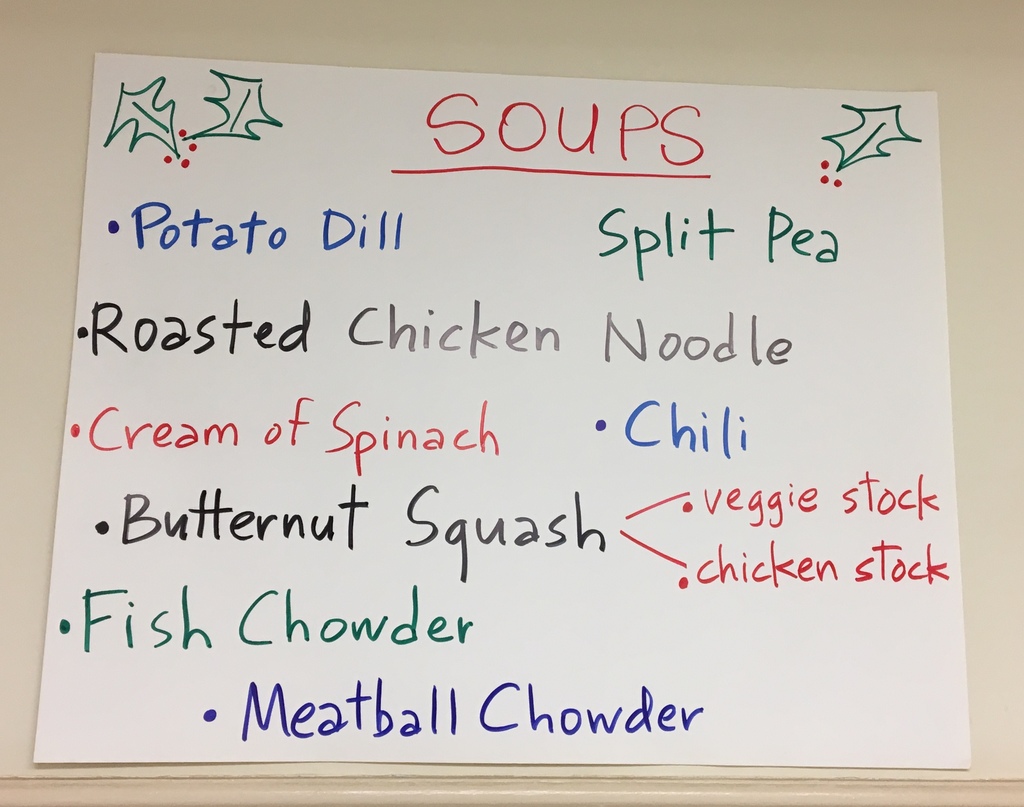 SOUPS
• Potato Dill
Split Pea
• Roasted Chicken Noodle
• Cream of Spinach
• Chili
• Butternut Squash
• veggie stock
• chicken stock
• Fish Chowder
• Meatball Chowder